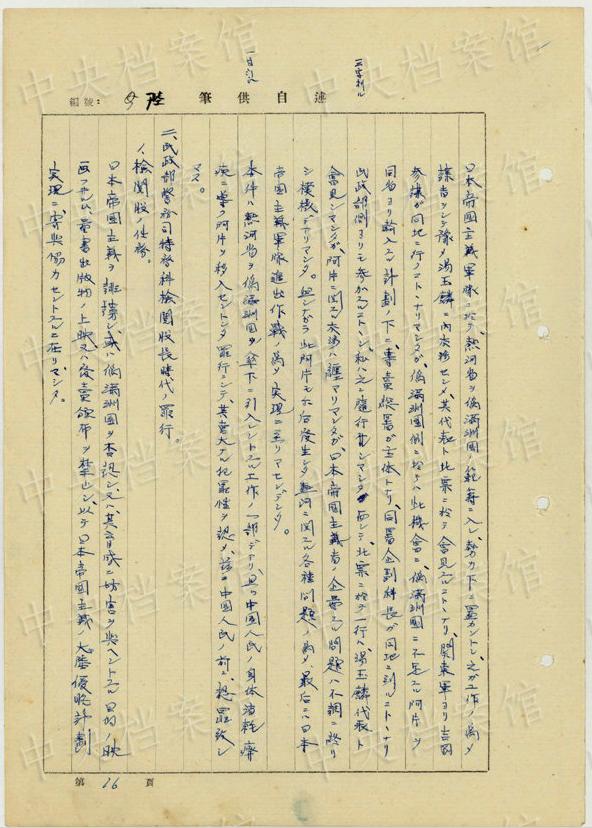 一字訂正
三字削ル
編號：
筆供自述
日本帝國主義軍隊ニ於テ熱河省ヲ偽満洲國ノ範疇ニ入レ、勢力下ニ置カントシ、之ガ工作ノ為メ
謀者ヲシテ豫メ湯玉麟ニ内交渉セシメ、其代表ト北票ニ於テ會見スルコトトナリ、関東軍ヨリ吉岡
参謀が同地ニ行クコトトナリマシタガ、偽満洲國側ニ於テハ此機會ニ偽満洲國ニ不足スル阿片ヲ
同省ヨリ輸入スル計劃ノ下ニ、專賣総署ガ主体トナリ、同署企劃科長ガ同地ニ到ルコトトナリ
民政部側ヨリモ参加スルコトトシ、私ハ之ニ随行サレマシタ。而シテ、北票ニ於テ一行ハ湯玉麟代表ト
會見シマシタガ、阿片ニ関スル交渉ハ纏マリマシタガ、日本帝國主義者ノ企図スル問題ハ不調ニ終リ
シ模様デアリマシタ。然シナガラ此阿片モ其后發生シタ熱河ニ関スル各種問題ノ為メ、最后ニハ日本
帝國主義軍隊進出作戦ノ為メ実現ニ至リマセンデシタ。
本件ハ熱河省ヲ偽満洲國ノ傘下ニ引入レントスル工作ノ一部デアリ、且ツ中國人民ノ身体消耗、麻
痺ニ導ク阿片ヲ移入セントシタ罪行ニシテ、其重大ナル犯罪性ヲ認メ、茲ニ中國人民ノ前ニ認罪致シ
マス。
二、民政部警務司特務科検閲股長時代ノ罪行。
1、検閲股ノ任務。
日本帝國主義ヲ誹謗シ、或ハ偽満洲國ヲ否認シ、又ハ其育成ニ妨害ヲ與ヘントスル目的ノ映
画フィルム、図書出版物ノ上映又ハ發賣頒布ヲ禁止シ、以テ日本帝國主義ノ大陸侵略計劃
実現ニ寄與協力セントスルニ在リマシタ。
第 16 頁
中央档案馆